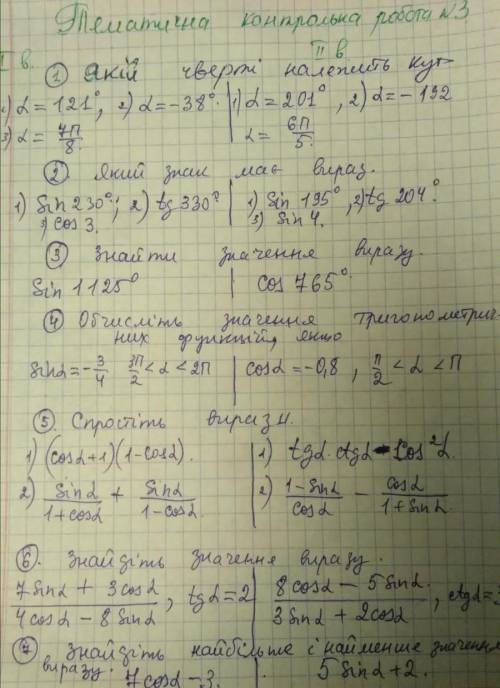 Тематична контрольна робота №3
I в. II в
① Якій чверті належить кут
1) α = 121°, 2) α = -38° | 1) α = 201°, 2) α = -192
3) α = 7π/8. | α = 6π/5.
② Який знак має вираз.
1) Sin 230°; 2) tg 330° | 1) Sin 195°, 2) tg 204°.
3) cos 3. | 3) Sin 4.
③ Знайти значення виразу.
Sin 1125° | cos 765°.
④ Обчисліть значення тригонометрич-
них функцій, якщо
sinα = -3/4 3π/2 < α < 2π | cosα = -0,8, π/2 < α < π
⑤ Спростіть вирази.
1) (cosα+1)(1-cosα). | 1) tgα·ctgα - cos²α.
2) sinα/(1+cosα) + sinα/(1-cosα) | 2) (1-sinα)/cosα - cosα/(1+sinα)
⑥. Знайдіть значення виразу.
(7sinα + 3cosα)/(4cosα - 8sinα), tgα=2 | (8cosα - 5sinα)/(3sinα + 2cosα), ctgα=
⑦ Знайдіть найбільше і найменше значення
виразу. 7cosα - 3. | 5sinα + 2.